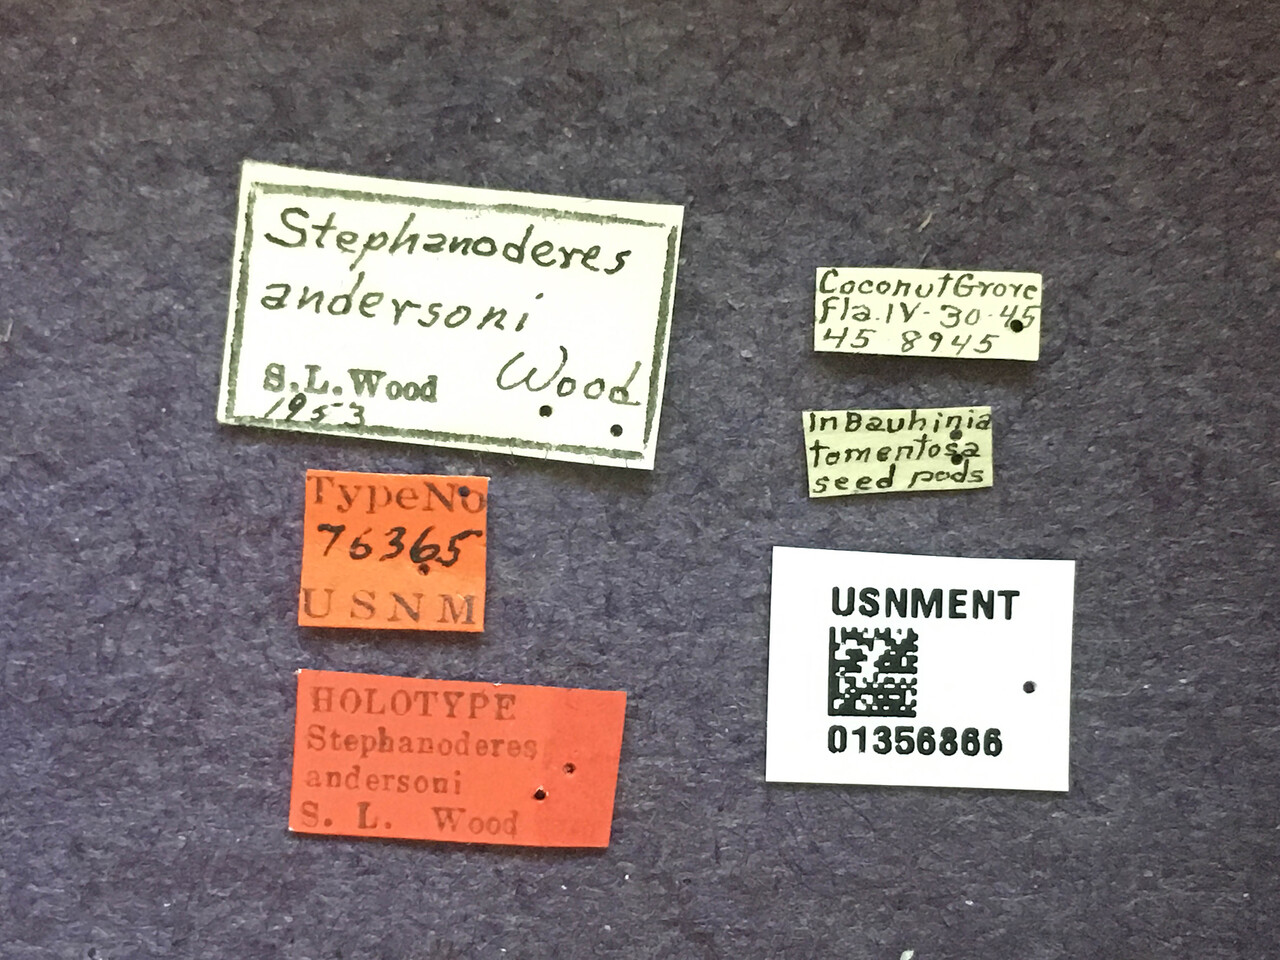 Stephanoderes
andersoni
Wood
S.L.Wood
1953
TypeNo
76365
USNM
HOLOTYPE
Stephanoderes
andersoni
S. L. Wood
Coconut Grove
Fla. IV-30-45
45 8945
In Bauhinia
tomentosa
seed pods
USNMENT
01356866